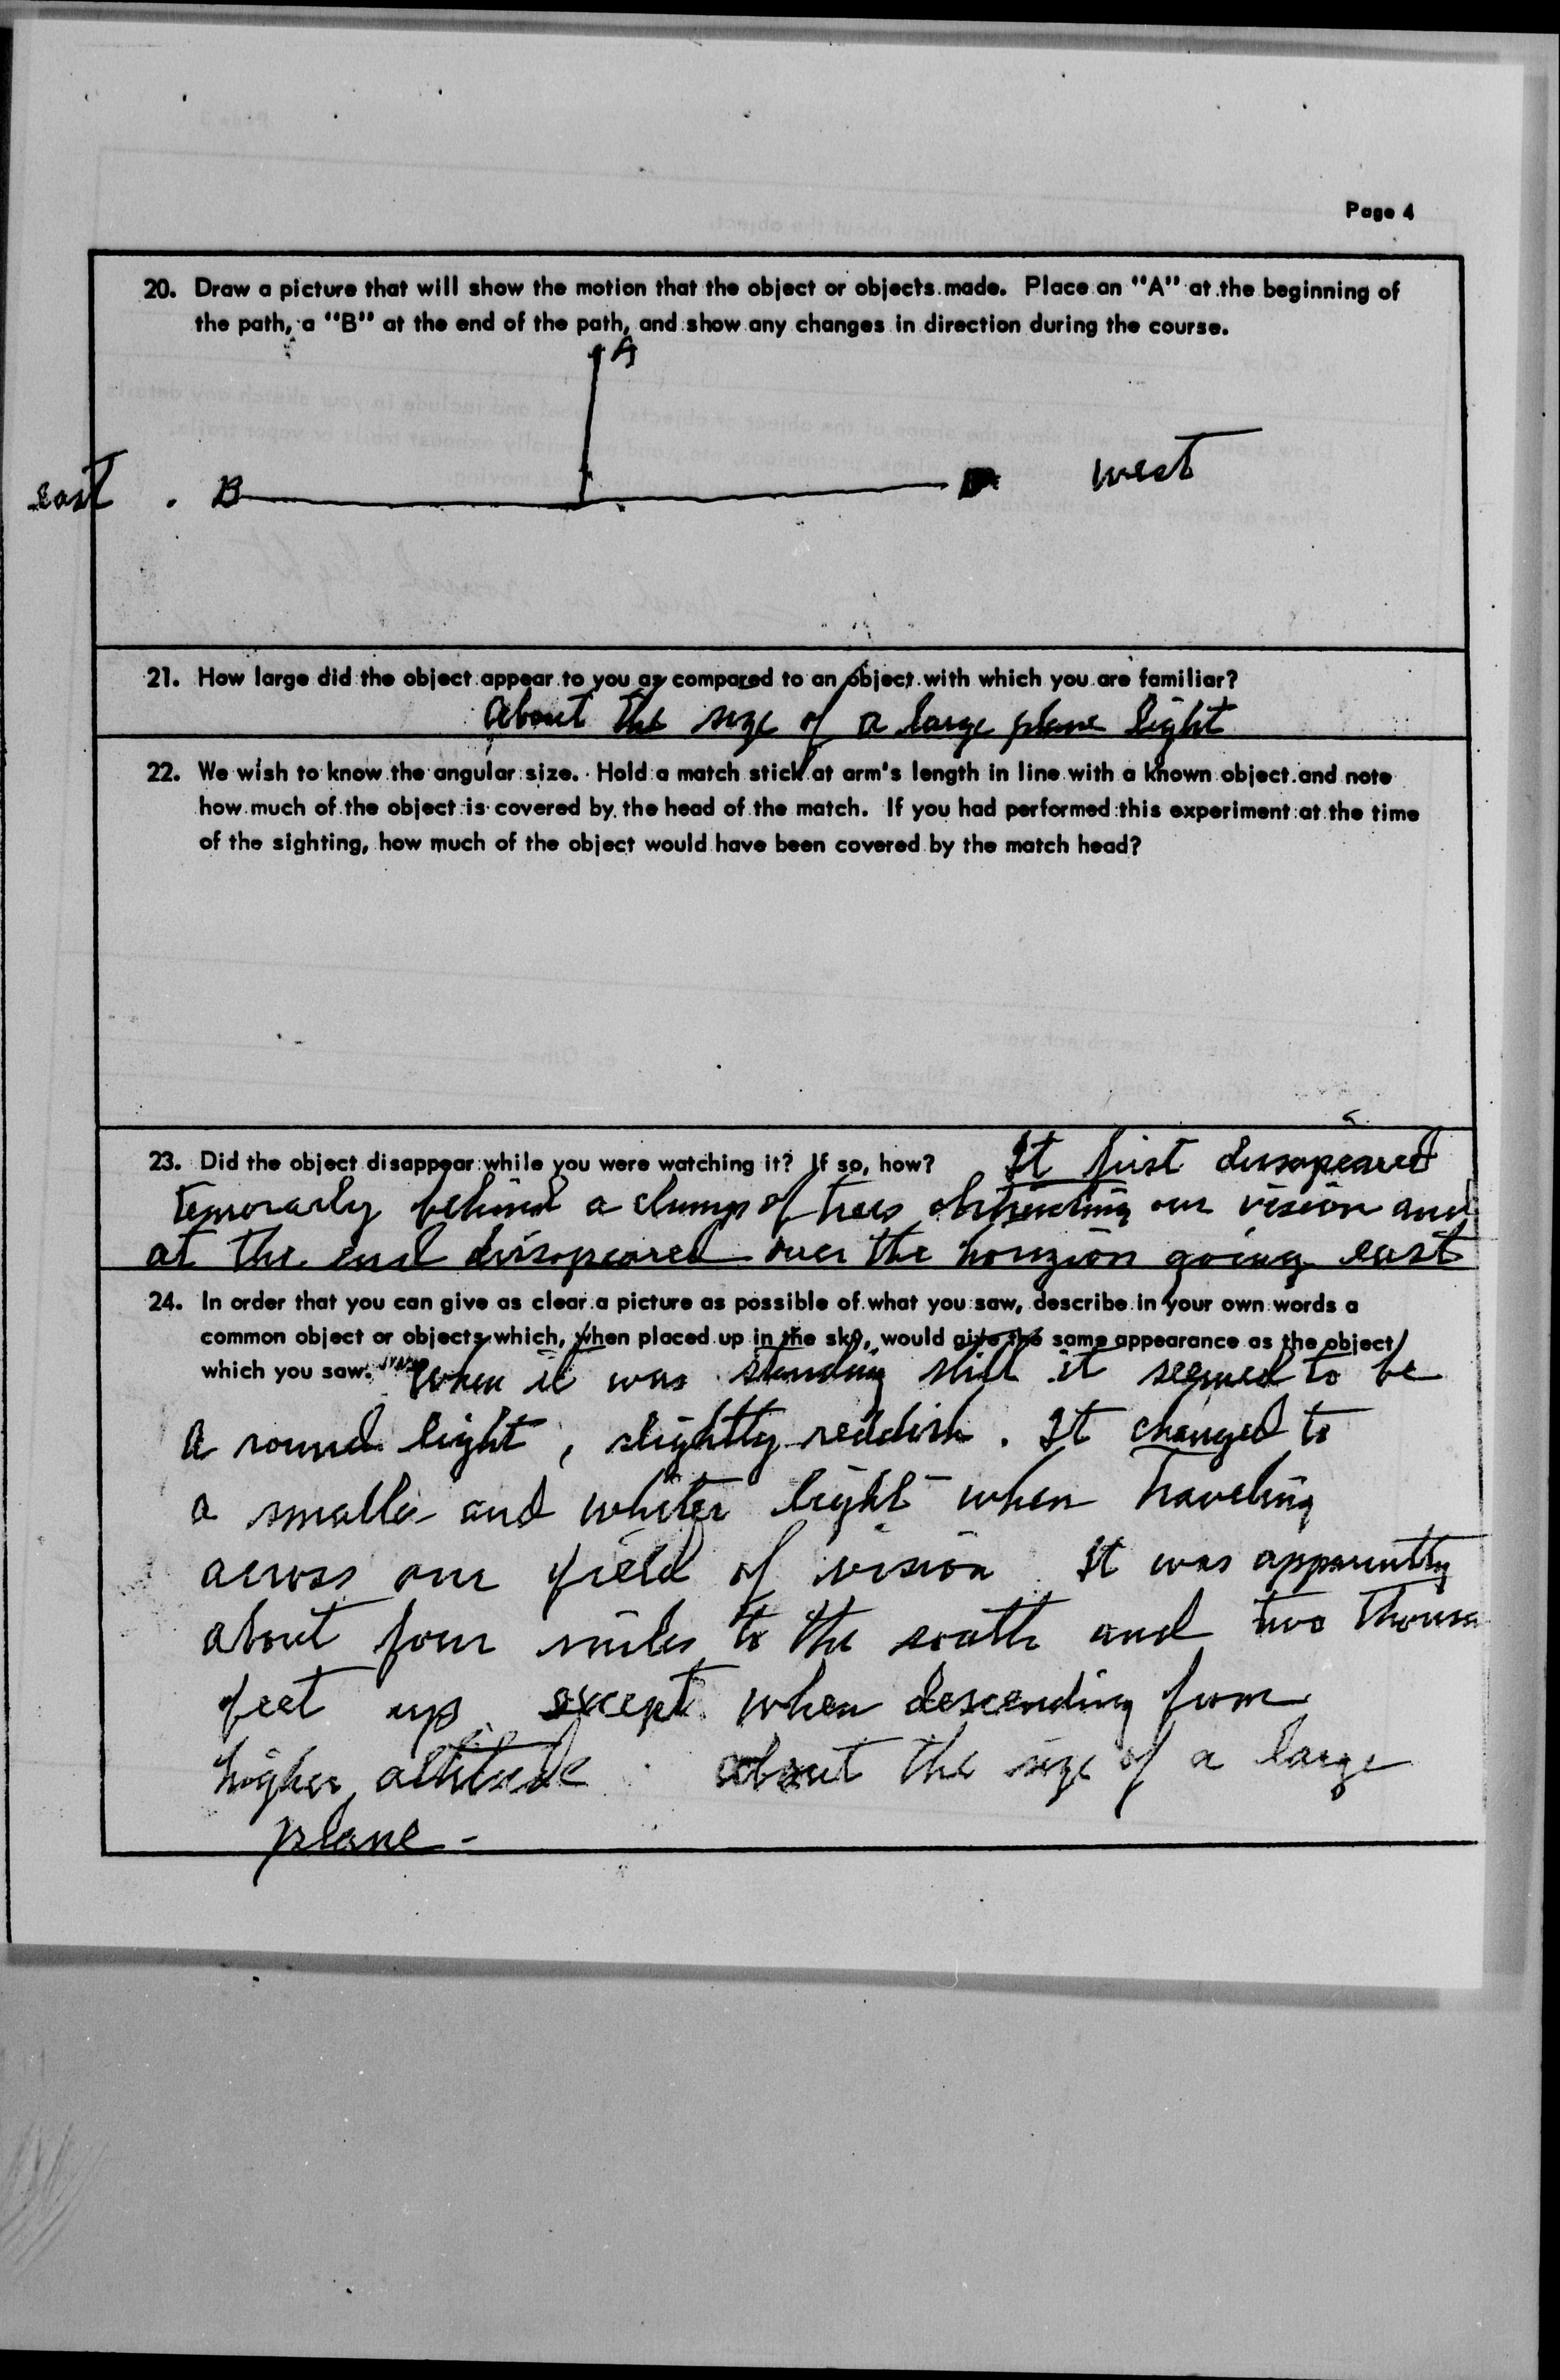 Page 4
20. Draw a picture that will show the motion that the object or objects made. Place an "A" at the beginning of
the path, a "B" at the end of the path, and show any changes in direction during the course.
A
east . B west
21. How large did the object appear to you as compared to an object with which you are familiar?
About the size of a large plane light
22. We wish to know the angular size. Hold a match stick at arm's length in line with a known object and note
how much of the object is covered by the head of the match. If you had performed this experiment at the time
of the sighting, how much of the object would have been covered by the match head?
23. Did the object disappear while you were watching it? If so, how? It first dissapeared
temorarly behind a clump of trees obstructing our vision and
at the end dissapeared over the horizion going east
24. In order that you can give as clear a picture as possible of what you saw, describe in your own words a
common object or objects which, when placed up in the sky, would give the same appearance as the object
which you saw. When it was standing still it seemed to be
a round light, slightly reddish. It changed to
a smaller and whiter light when traveling
across our field of vision. It was apparently
about four miles to the south and two thousa
feet up except when descending from
higher altitude. about the size of a large
plane -